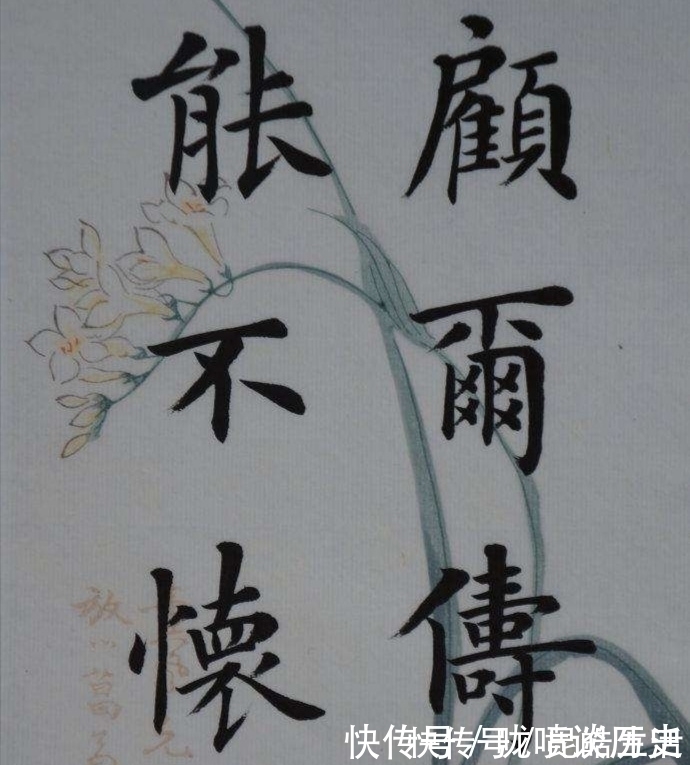 顧爾儔
能不懷
快传号 /